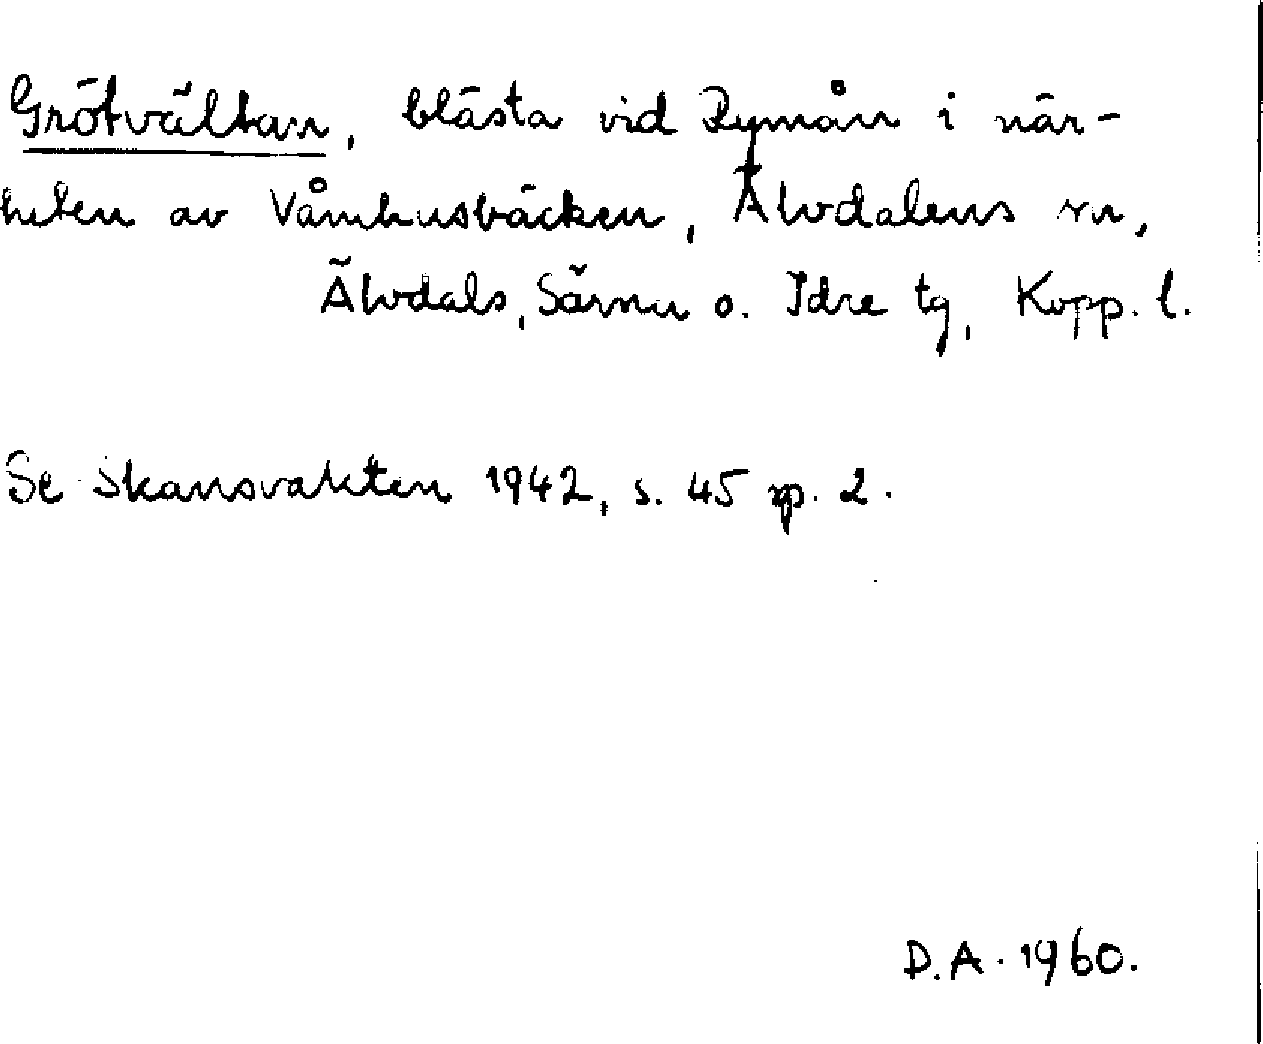 Grötvältan, blästa vid Rymån i när-
heten av Våmhusbäcken, Älvdalens sn,
Älvdals, Särna o. Idre tg, Kopp. l.
Se Skansvakten 1942, s. 45 sp. 2.
D.A. 1960.